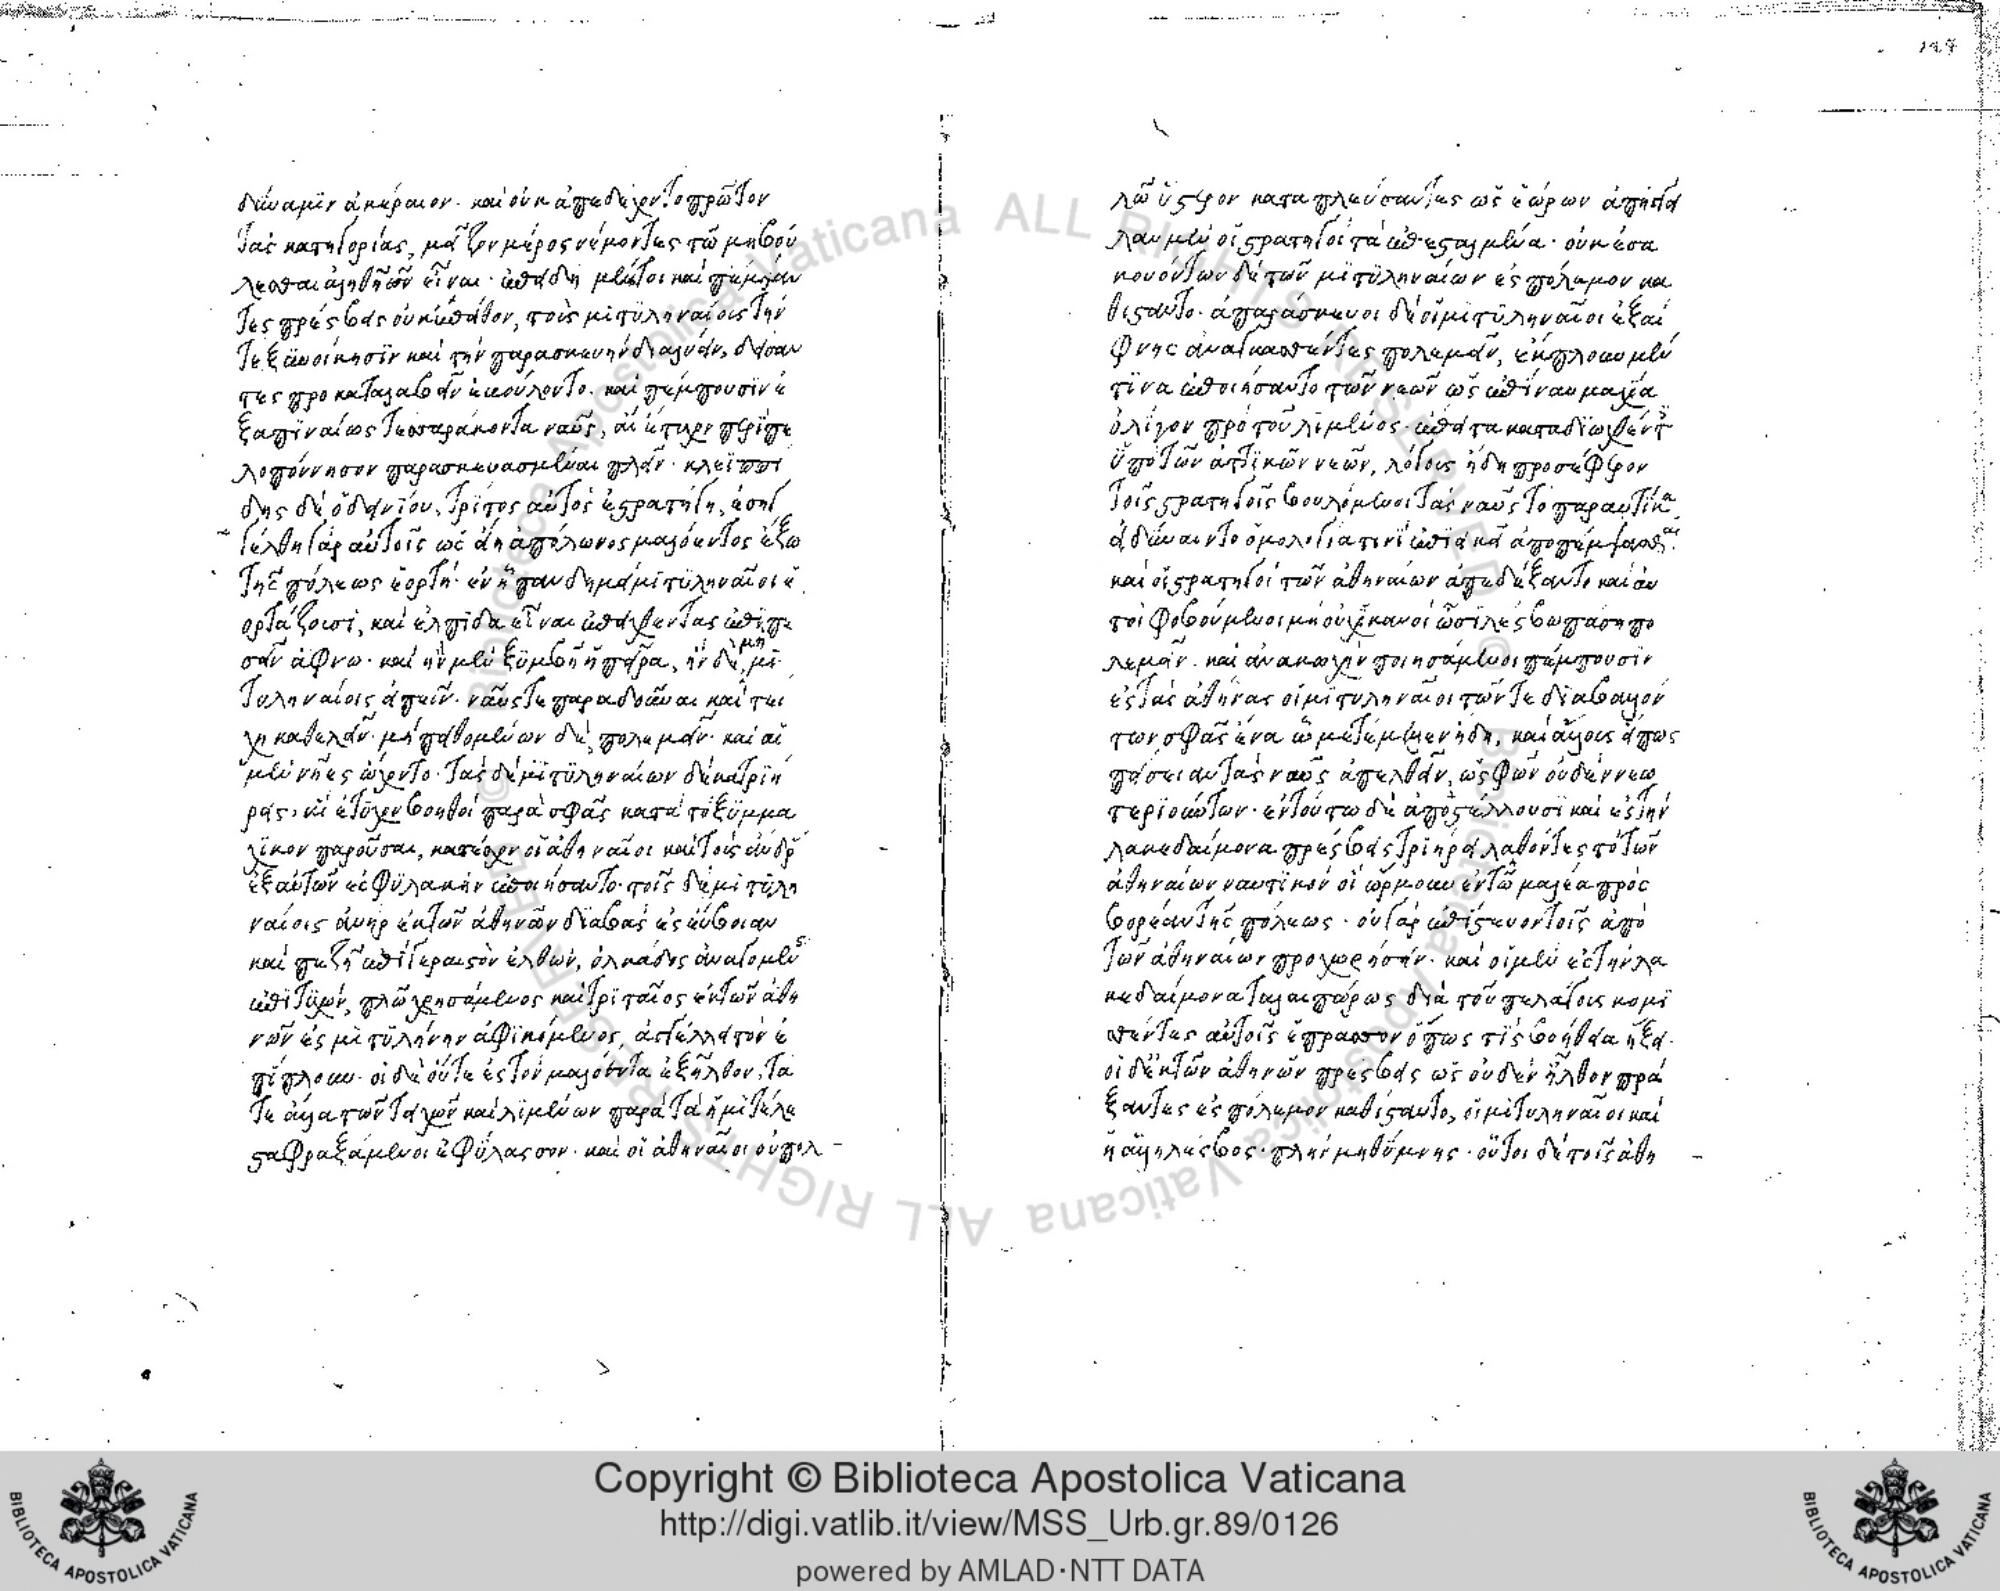 δύναμϊν ἀκέραιον· καὶ οὐκ ἀπεδέχοντο πρῶτον
τὰς κατηγορίας, μεῖζον μέρος νέμοντες τῶ μὴ βού
λεσθαι ἀληθῆ εἶναι· ἐπειδὴ μέντοι καὶ πέμψαν
τες πρέσβεις οὐκ ἔπειθον, τοὺς μιτυληναίους τήν
τε ξυνοίκησϊν καὶ τὴν παρασκευὴν διαλύειν, δείσαν
τες προκαταλαβεῖν ἐβούλοντο· καὶ πέμπουσϊν ἐ
ξαπϊναίως τεσσαράκοντα ναῦς, αἳ ἔτυχον περὶ πε
λοπόννησον παρασκευασμέναι πλεῖν· κλεϊππί
δης δὲ ὁ δεινίου, τρίτος αὐτὸς ἐστρατήγει, ἐσηγ
γέλθη γὰρ αὐτοῖς ὡς εἴη ἀπόλωνος μαλόεντος ἔξω
τῆς πόλεως ἑορτή· ἐν ἧ πανδημεὶ μιτυληναῖοι ἑ
ορτάζουσι, καὶ ἐλπίδα εἶναι ἐπειχθέντας ἐπιπε
σεῖν ἄφνω· καὶ ἢν μὲν ξυμβῆ ἡ πεῖρα, ἢν δὲ μὴ, μι
τυληναίοις εἰπεῖν· ναῦς τε παραδοῦναι καὶ τεί
χη καθελεῖν· μὴ πειθομένων δὲ, πολεμεῖν· καὶ αἱ
μὲν νῆες ὤχοντο· τὰς δὲ μϊτυληναίων δέκα τριή
ρεις, αἳ ἔτυχον βοηθοὶ παρὰ σφᾶς κατὰ τὸ ξυμμα
χϊκὸν παροῦσαι, κατέσχον οἱ ἀθηναῖοι καὶ τοὺς ἄνδρ
ἐξ αὐτῶν ἐς φϋλακὴν ἐποιήσαντο· τοῖς δὲ μιτυλη
ναίοις ἀνὴρ ἐκ τῶν ἀθηνῶν διαβὰς ἐς εὔβοιαν
καὶ πεζῆ ἐπὶ γεραιστὸν ἐλθὼν, ὁλκάδος ἀναγομένς
ἐπιτυχὼν, πλῶ χρησάμενος καὶ τριταῖος ἐκ τῶν ἀθη
νῶν ἐς μιτυλήνην ἀφϊκόμενος, ἀγγέλλει τὸν ἐ
πίπλουν· οἱ δὲ οὔτε ἐς τὸν μαλόεντα ἐξῆλθον, τά
τε ἄλλα τῶν τειχῶν καὶ λιμένων παρὰ τὰ ἡμιτέλε
σα φραξάμενοι ἐφύλασσον· καὶ οἱ ἀθηναῖοι οὐ πολ
λῶ ὕστερον καταπλεύσαντες ὡς ἑώρων ἀπήγγει
λαν μὲν οἱ στρατηγοὶ τὰ ἐπεσταλμένα· οὐκ ἐσα
κουόντων δὲ τῶν μϊτυληναίων ἐς πόλεμον κα
θίσταντο· ἀπαράσκευοι δὲ οἱ μιτυληναῖοι ἐξαί
φνης ἀναγκασθέντες πολεμεῖν, ἔκπλουν μέν
τϊνα ἐποιήσαντο τῶν νεῶν ὡς ἐπὶ ναυμαχία
ὀλίγον πρὸ τοῦ λιμένος· ἔπειτα καταδιωχθέντ
ὑπὸ τῶν ἀττϊκῶν νεῶν, λόγους ἤδη προσέφερον
τοῖς στρατηγοῖς βουλόμενοι τὰς ναῦς τὸ παραυτίκα
εἰ δύναιντο ὁμολογία τινὶ ἐπιεικεῖ ἀποπέμψασθαι·
καὶ οἱ στρατηγοὶ τῶν ἀθηναίων ἀπεδέξαντο καὶ αὐ
τοὶ φοβούμενοι μὴ οὐχ ἱκανοὶ ὦσι λέσβω πάση πο
λεμεῖν· καὶ ἀνακωχὴν ποιησάμενοι πέμπουσϊν
ἐς τὰς ἀθήνας οἱ μιτυληναῖοι τῶν τε διαβαλλόν
των σφᾶς ἕνα ὧ μετέμελεν ἤδη, καὶ ἄλλους εἴπως
πείσειαν τὰς ναῦς ἀπελθεῖν, ὡς σφῶν οὐδὲν νεω
τεριούντων· ἐν τούτω δὲ ἀποστέλλουσι καὶ ἐς τὴν
λακεδαίμονα πρέσβεις τριήρει λαθόντες τὸ τῶν
ἀθηναίων ναυτϊκὸν οἳ ὥρμουν ἐν τῶ μαλέα πρὸς
βορέαν τῆς πόλεως· οὐ γὰρ ἐπίστευον τοῖς ἀπὸ
τῶν ἀθηναίων προχωρήσειν· καὶ οἱ μὲν ἐς τὴν λα
κεδαίμονα ταλαιπώρως διὰ τοῦ πελάγους κομι
σθέντες αὐτοῖς ἔπρασσον ὅπως τις βοήθεια ἥξει·
οἱ δ' ἐκ τῶν ἀθηνῶν πρέσβεις ὡς οὐδὲν ἦλθον πρά
ξαντες ἐς πόλεμον καθίσταντο, οἱ μιτυληναῖοι καὶ
ἡ ἄλλη λέσβος· πλὴν μηθύμνης· οὗτοι δὲ τοῖς ἀθη
Copyright © Biblioteca Apostolica Vaticana
http://digi.vatlib.it/view/MSS_Urb.gr.89/0126
powered by AMLAD·NTT DATA